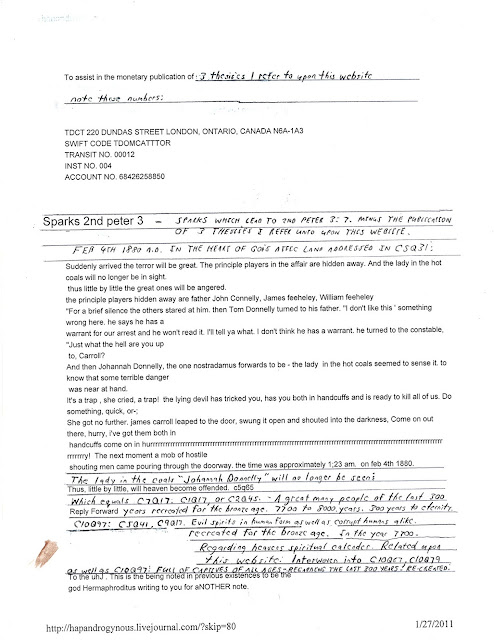 To assist in the monetary publication of: 3 thesises I refer to upon this website
note these numbers:
TDCT 220 DUNDAS STREET LONDON, ONTARIO, CANADA N6A-1A3
SWIFT CODE TDOMCATTTOR
TRANSIT NO. 00012
INST NO. 004
ACCOUNT NO. 68426258850
Sparks 2nd peter 3 – SPARKS WHICH LEAD TO 2ND PETER 3:7. MINUS THE PUBLICATION
OF 3 THESISES I REFER UNTO UPON THIS WEBSITE.
FEB 4TH 1880 A.D. IN THE HEART OF GOIS ATTEC LAND ADDRESSED IN C5Q31:
Suddenly arrived the terror will be great. The principle players in the affair are hidden away. And the lady in the hot
coals will no longer be in sight.
thus little by little the great ones will be angered.
the principle players hidden away are father John Connelly, James feeheley, William feeheley
"For a brief silence the others stared at him. then Tom Donnelly turned to his father. "I don't like this ' something
wrong here. he says he has a
warrant for our arrest and he won't read it. I'll tell ya what. I don't think he has a warrant. he turned to the constable,
"Just what the hell are you up
to, Carroll?
And then Johannah Donnelly, the one nostradamus forwards to be - the lady in the hot coals seemed to sense it. to
know that some terrible danger
was near at hand.
It's a trap , she cried, a trap! the lying devil has tricked you, has you both in handcuffs and is ready to kill all of us. Do
something, quick, or-;
She got no further. james carroll leaped to the door, swung it open and shouted into the darkness, Come on out
there, hurry, i've got them both in
handcuffs come on in
shouting men came pouring through the doorway. the time was approximately 1:23 am. on feb 4th 1880.
The lady in the coals "Johannah Donnelly" will no longer be seen:
Thus, little by little, will heaven become offended. c5q65
Which equals C7Q17. C1Q17, or C2Q45. - A great many people of the last 300
Reply Forward years recreated for the bronze age. 7700 to 8000 years. 300 years to eternity.
C10Q97: C5Q41, C9Q17. Evil spirits in human form as well as corrupt humans alike.
recreated for the bronze age. In the year 7700.
Regarding heavens spiritual calender. Related upon
this website. Interwoven into C10Q67, C10Q79
as well as C10Q97: FULL OF CAPTIVES OF ALL AGES - REGARDING THE LAST 300 YEARS: RE-CREATED.
To the uhJ . This is the being noted in previous existences to be the
god Hermaphroditus writing to you for aNOTHER note.
http://hapandrogynous.livejournal.com/?skip=80
1/27/2011